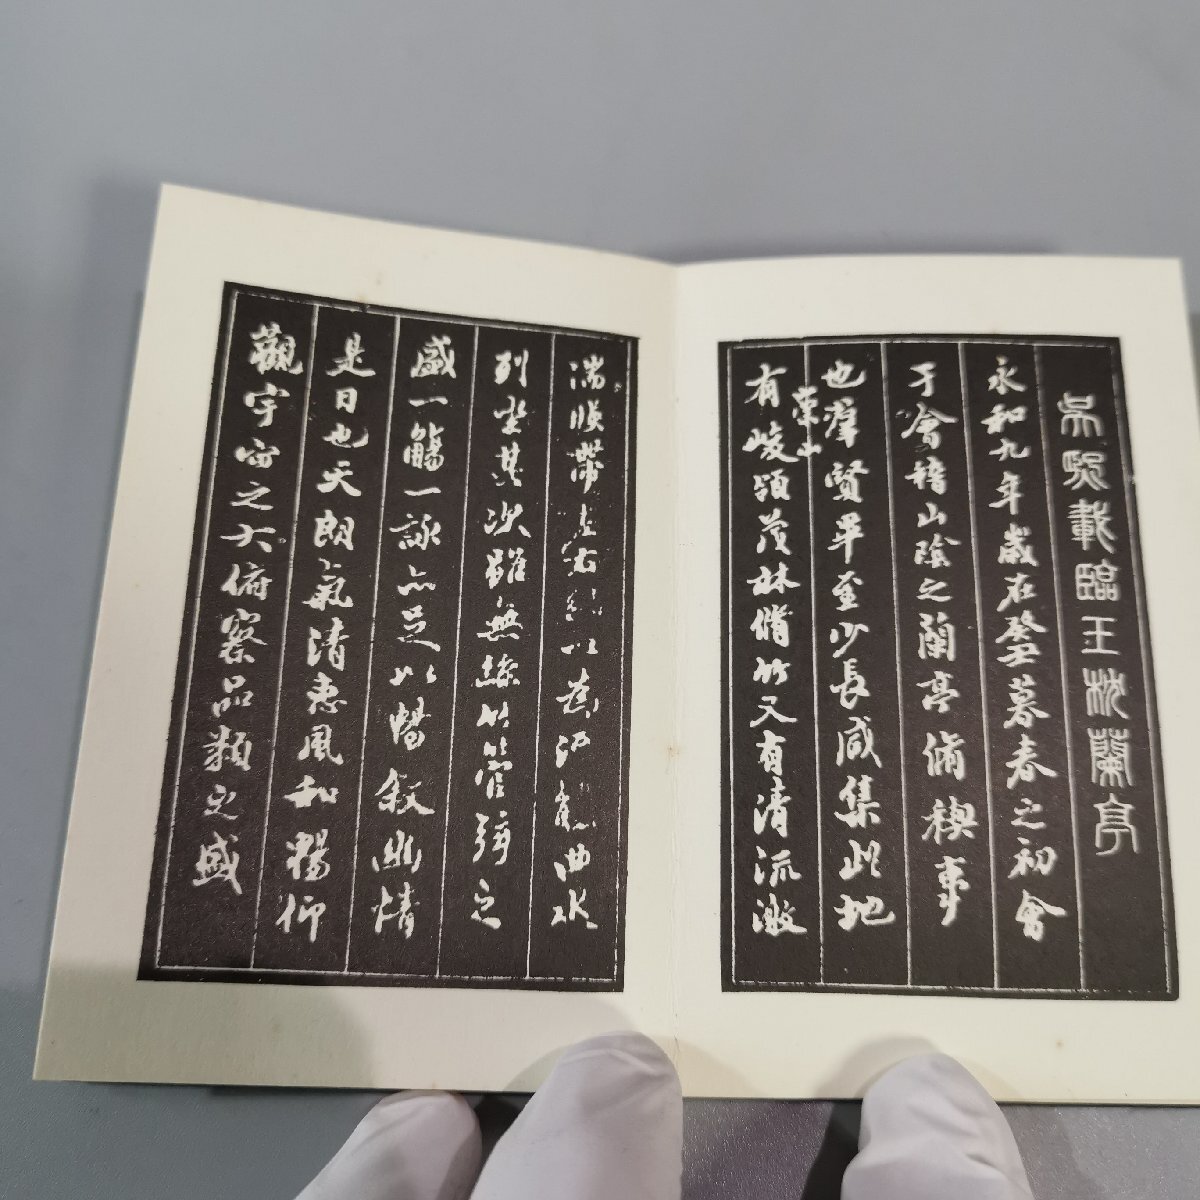 吳熙載臨玉枕蘭亭
永和九年歲在癸丑暮春之初會
于會稽山陰之蘭亭脩禊事
也羣賢畢至少長咸集此地
有崇山峻領茂林脩竹又有清流激
湍暎帶左右引以為流觴曲水
列坐其次雖無絲竹管弦之
盛一觴一詠亦足以暢敘幽情
是日也天朗氣清惠風和暢仰
觀宇宙之大俯察品類之盛